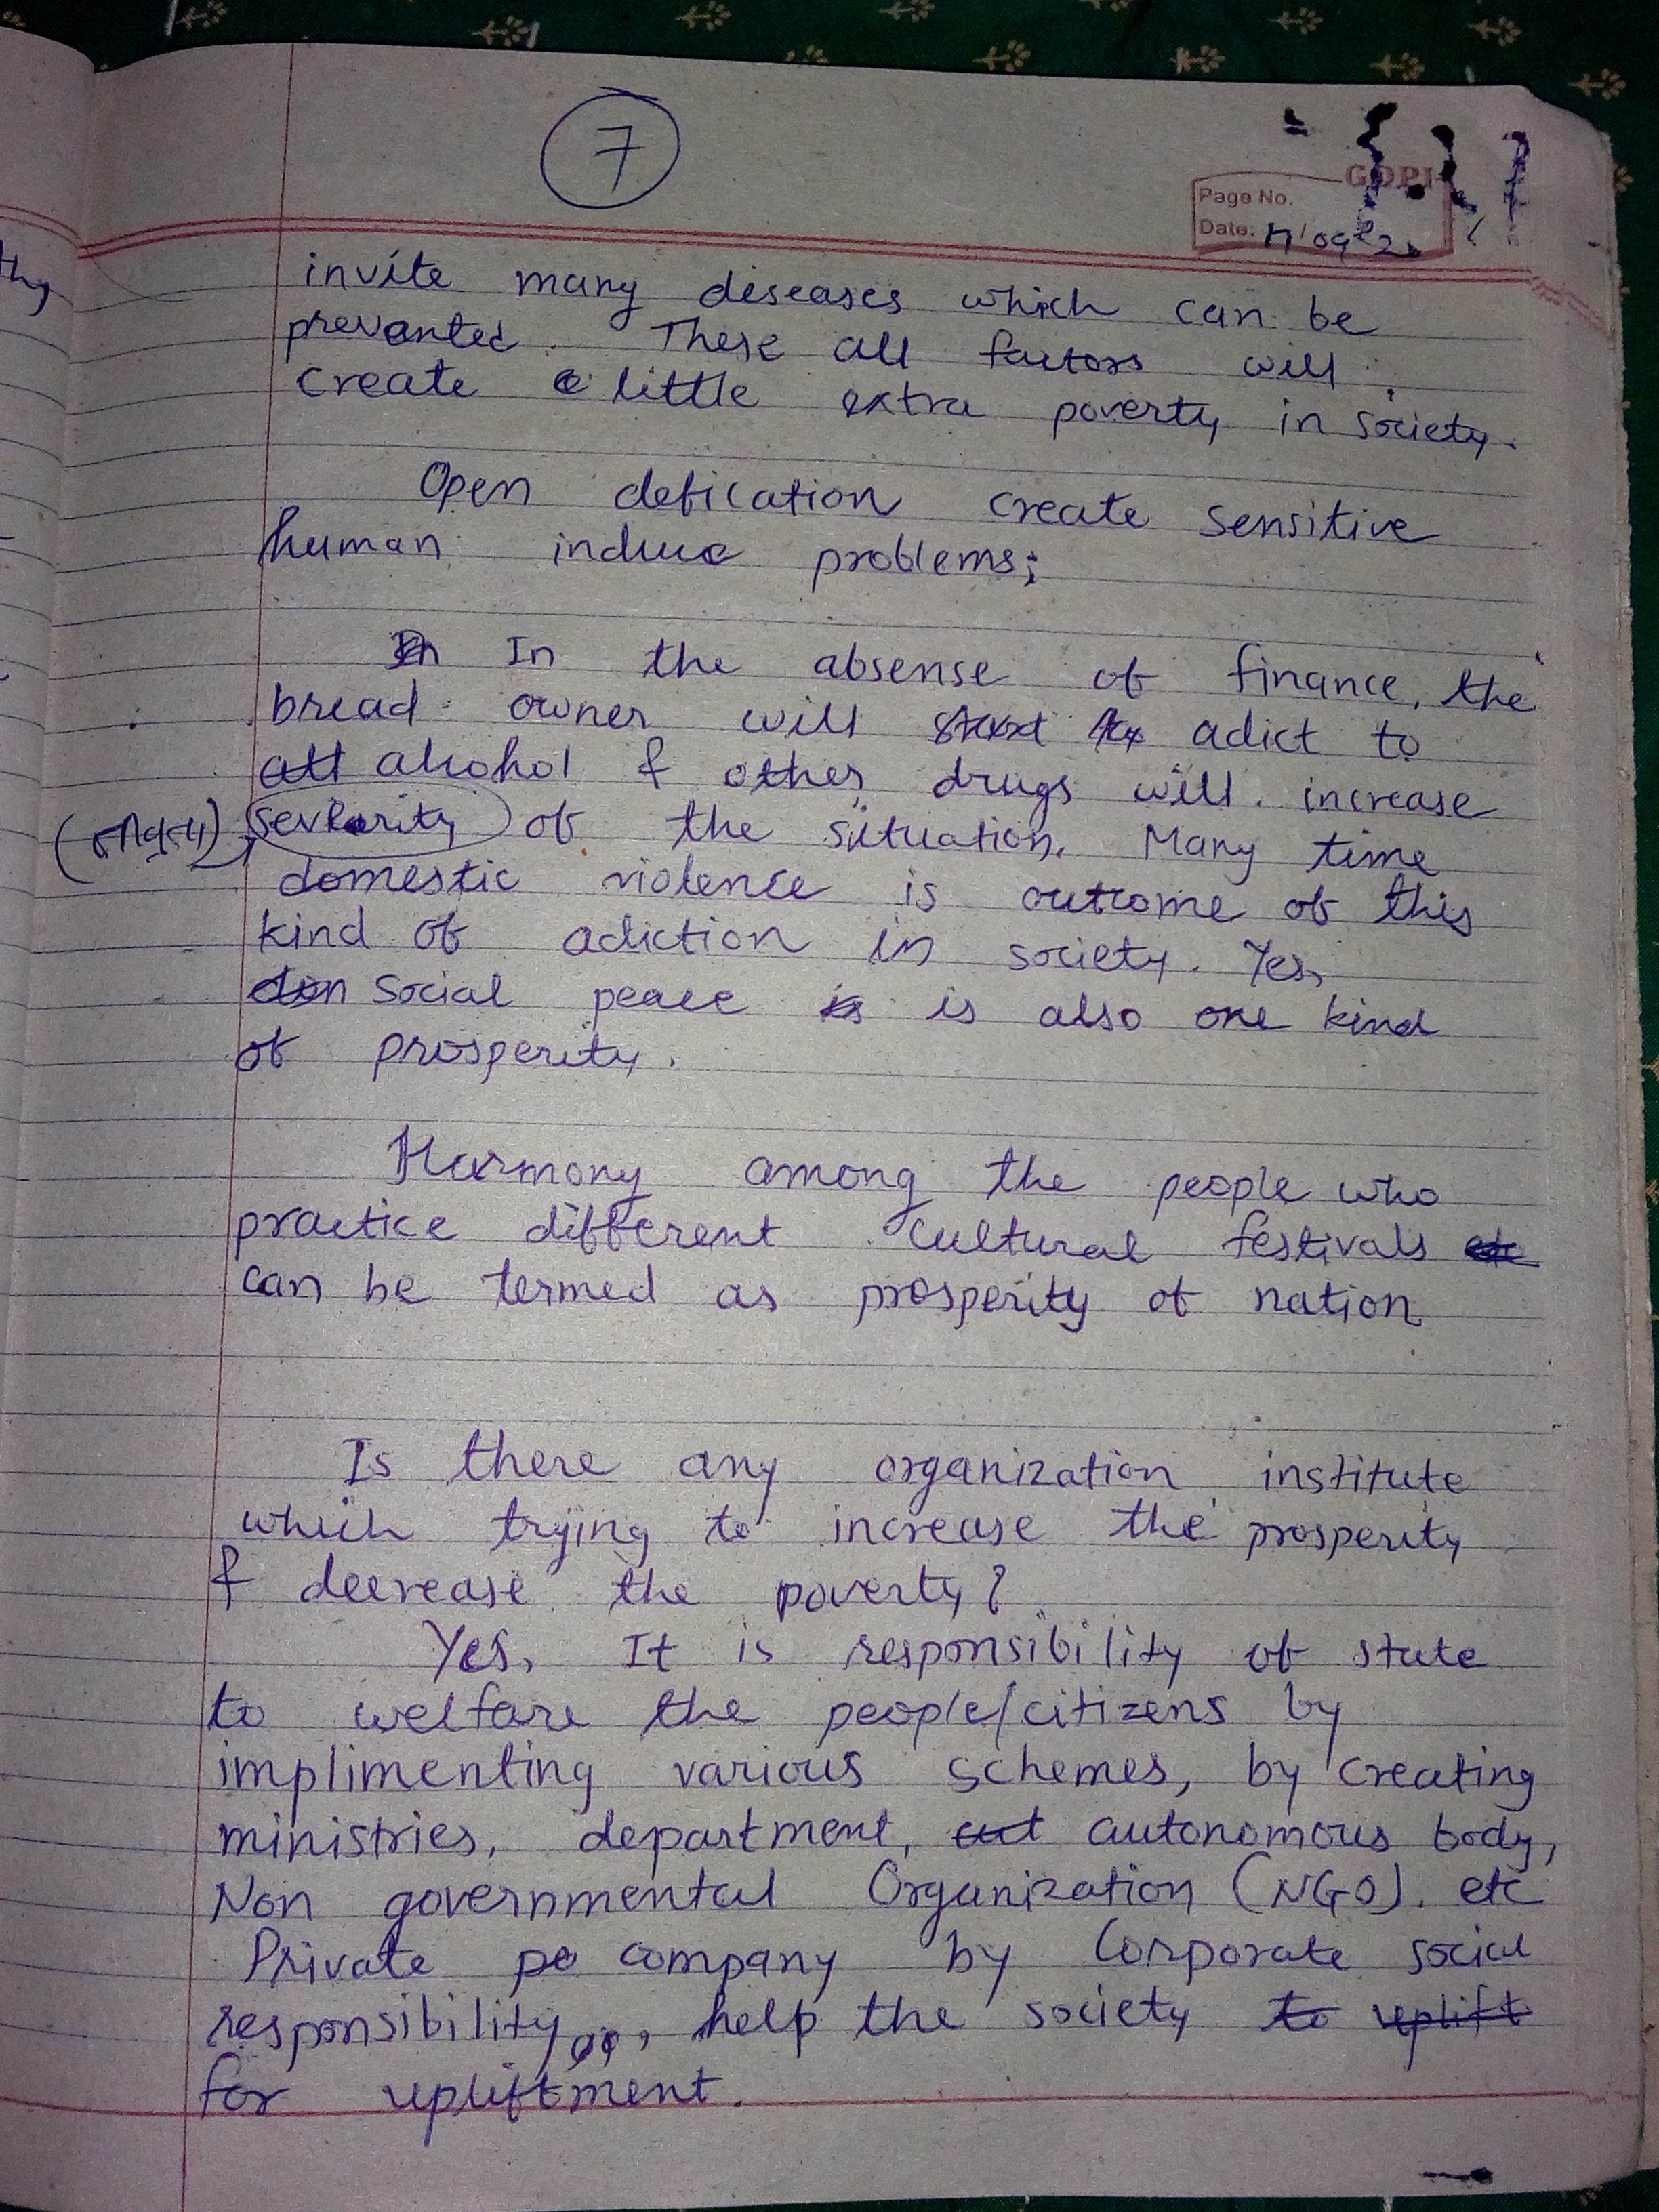 7
GOPI
Page No.
Date:
invite many diseases which can be
prevanted. These all factors will
create a little extra poverty in society.
Open defication create sensitive
human induce problems;
In the absense of finance, the
bread owner will adict to
alcohol & other drugs will increase
severity of the situation. Many time
domestic violence is outcome of this
kind of adiction in society. Yes,
social peace is also one kind
of prosperity.
Harmony among the people who
practice different cultural festivals
can be termed as prosperity of nation
Is there any organization institute
which trying to increase the prosperity
& decrease the poverty?
Yes, It is responsibility of state
to welfare the people/citizens by
implimenting various schemes, by creating
ministries, department, autonomous body,
Non governmental Organization (NGO). etc
Private company by Corporate social
responsibility, help the society to uplift
for upliftment.